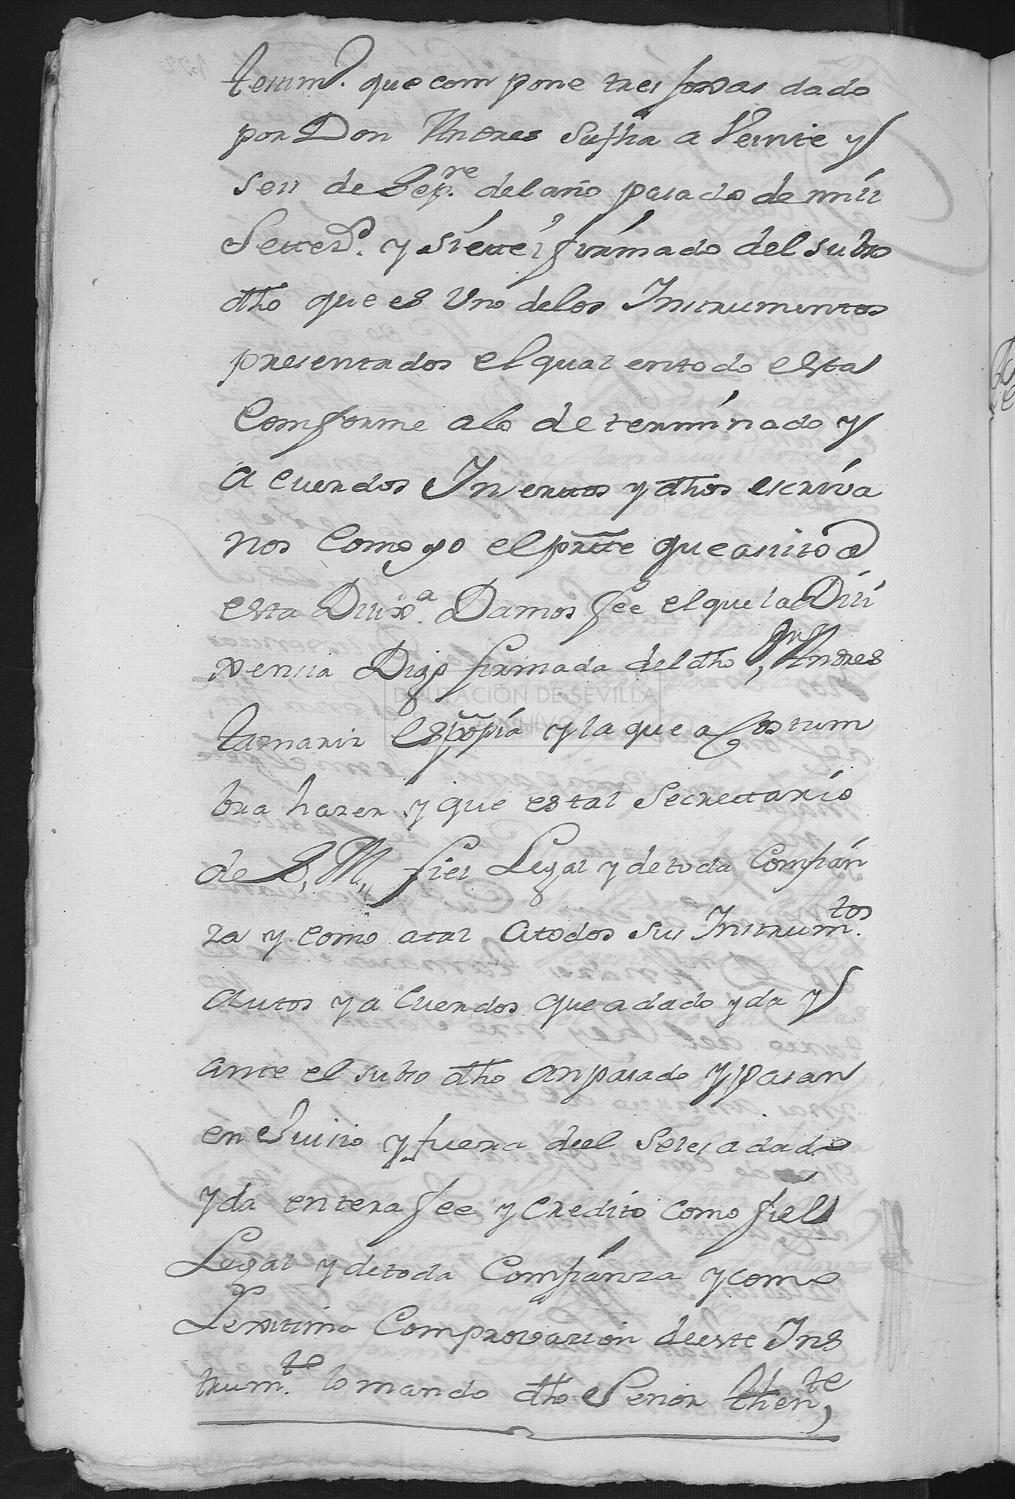 testim.º que compone tres foxas dado
por Don Andres a Veinte y
seis de Sep.re del año pasado de mill
Settez.s y siette, firmado del suso
dho que es Uno delos Instrumentos
presentados el qual entodo esta
Comforme alo determinado y
acuerdos Insertos y dhos escriva
nos Como yo el prste que asisto a
esta Dilix.a Damos fee el que la Dili
xencia Digo firmada del dho Dn Andres
Tamariz Es propia y la que acostum
bra hazer y que es tal Secrettario
de S. M. fiel Legal y detoda Comfian
za y como atal atodos sus Instrum.tos
autos y acuerdos que adado y da y
ante el suso dho an pasado y pasan
en Juisio y fuera deel Seles adado
y da entera fee y Credito como fiel
Legal y detoda Comfianza y como
Lexitima Comprovazion deeste Ins
trum.to lo mando dho Senor Then.te
DIPUTACIÓN DE SEVILLA
ARCHIVO